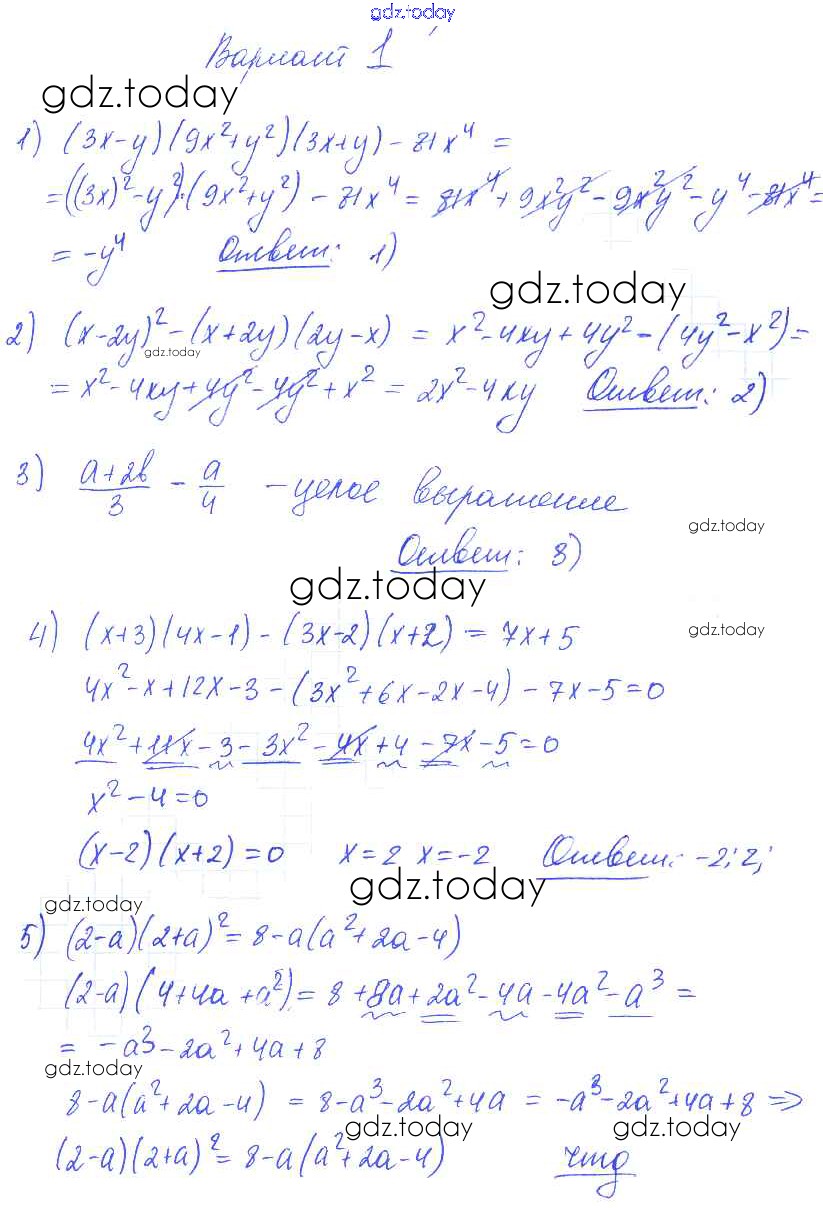 gdz.today
Вариант 1
gdz.today
1) (3x-y)(9x²+y²)(3x+y) - 81x⁴ =
= ((3x)²-y²)·(9x²+y²) - 81x⁴ = 81x⁴ + 9x²y² - 9x²y² - y⁴ - 81x⁴ =
= -y⁴ Ответ: 1)
gdz.today
2) (x-2y)² - (x+2y)(2y-x) = x²-4xy+4y²-(4y²-x²) =
gdz.today
= x²-4xy+4y²-4y²+x² = 2x²-4xy Ответ: 2)
3) (a+2b)/3 - a/4 - целое выражение
gdz.today
Ответ: 3)
gdz.today
4) (x+3)(4x-1) - (3x-2)(x+2) = 7x+5
gdz.today
4x²-x+12x-3-(3x²+6x-2x-4)-7x-5=0
4x²+11x-3-3x²-4x+4-7x-5=0
x²-4=0
(x-2)(x+2)=0 x=2 x=-2 Ответ: -2; 2;
gdz.today
gdz.today
5) (2-a)(2+a)² = 8-a(a²+2a-4)
(2-a)(4+4a+a²) = 8+8a+2a²-4a-4a²-a³ =
= -a³-2a²+4a+8
gdz.today
8-a(a²+2a-4) = 8-a³-2a²+4a = -a³-2a²+4a+8 =>
gdz.today gdz.today
(2-a)(2+a)² = 8-a(a²+2a-4) чтд